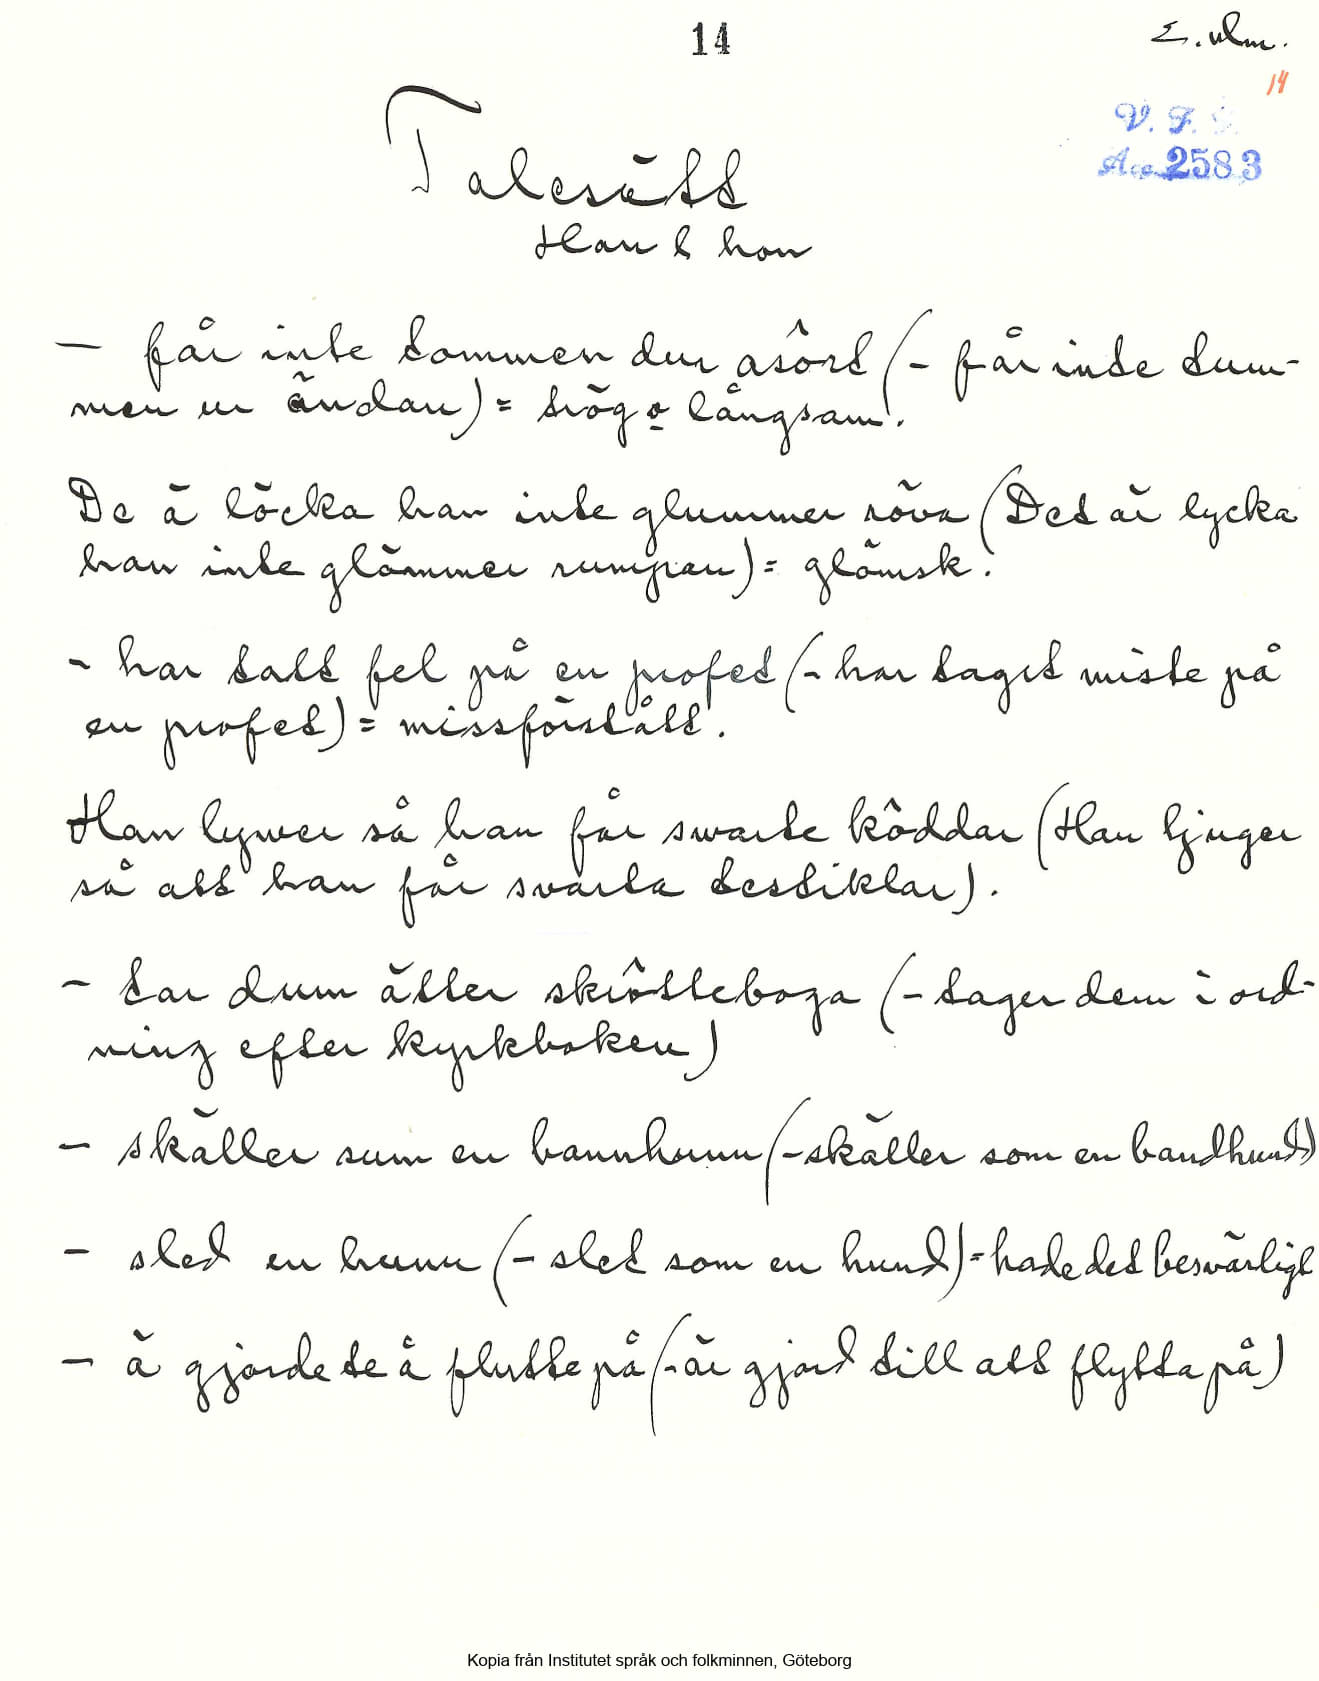 14
E. Ulm.
14
V. F.
Acc. 2583
Talesätt
Han l hon
– får inte tommen dur asôrt (– får inte tum-
men ur ändan) = trög o långsam.
De ä löcka han inte glummer röva (Det är lycka
han inte glömmer rumpan) = glömsk.
– har tatt fel på en profet (– har tagit miste på
en profet) = missförstått.
Han lywer så han får swarte kôddar (Han ljuger
så att han får svarta testiklar).
– tar dum ätter skrôtteboga (– tager dem i ord-
ning efter kyrkboken)
– skäller sum en bannhunn (– skäller som en bandhund)
– sled en hunn (– slet som en hund) = hade det besvärligt
– ä gjorde te å flutte på (– är gjord till att flytta på)
Kopia från Institutet språk och folkminnen, Göteborg